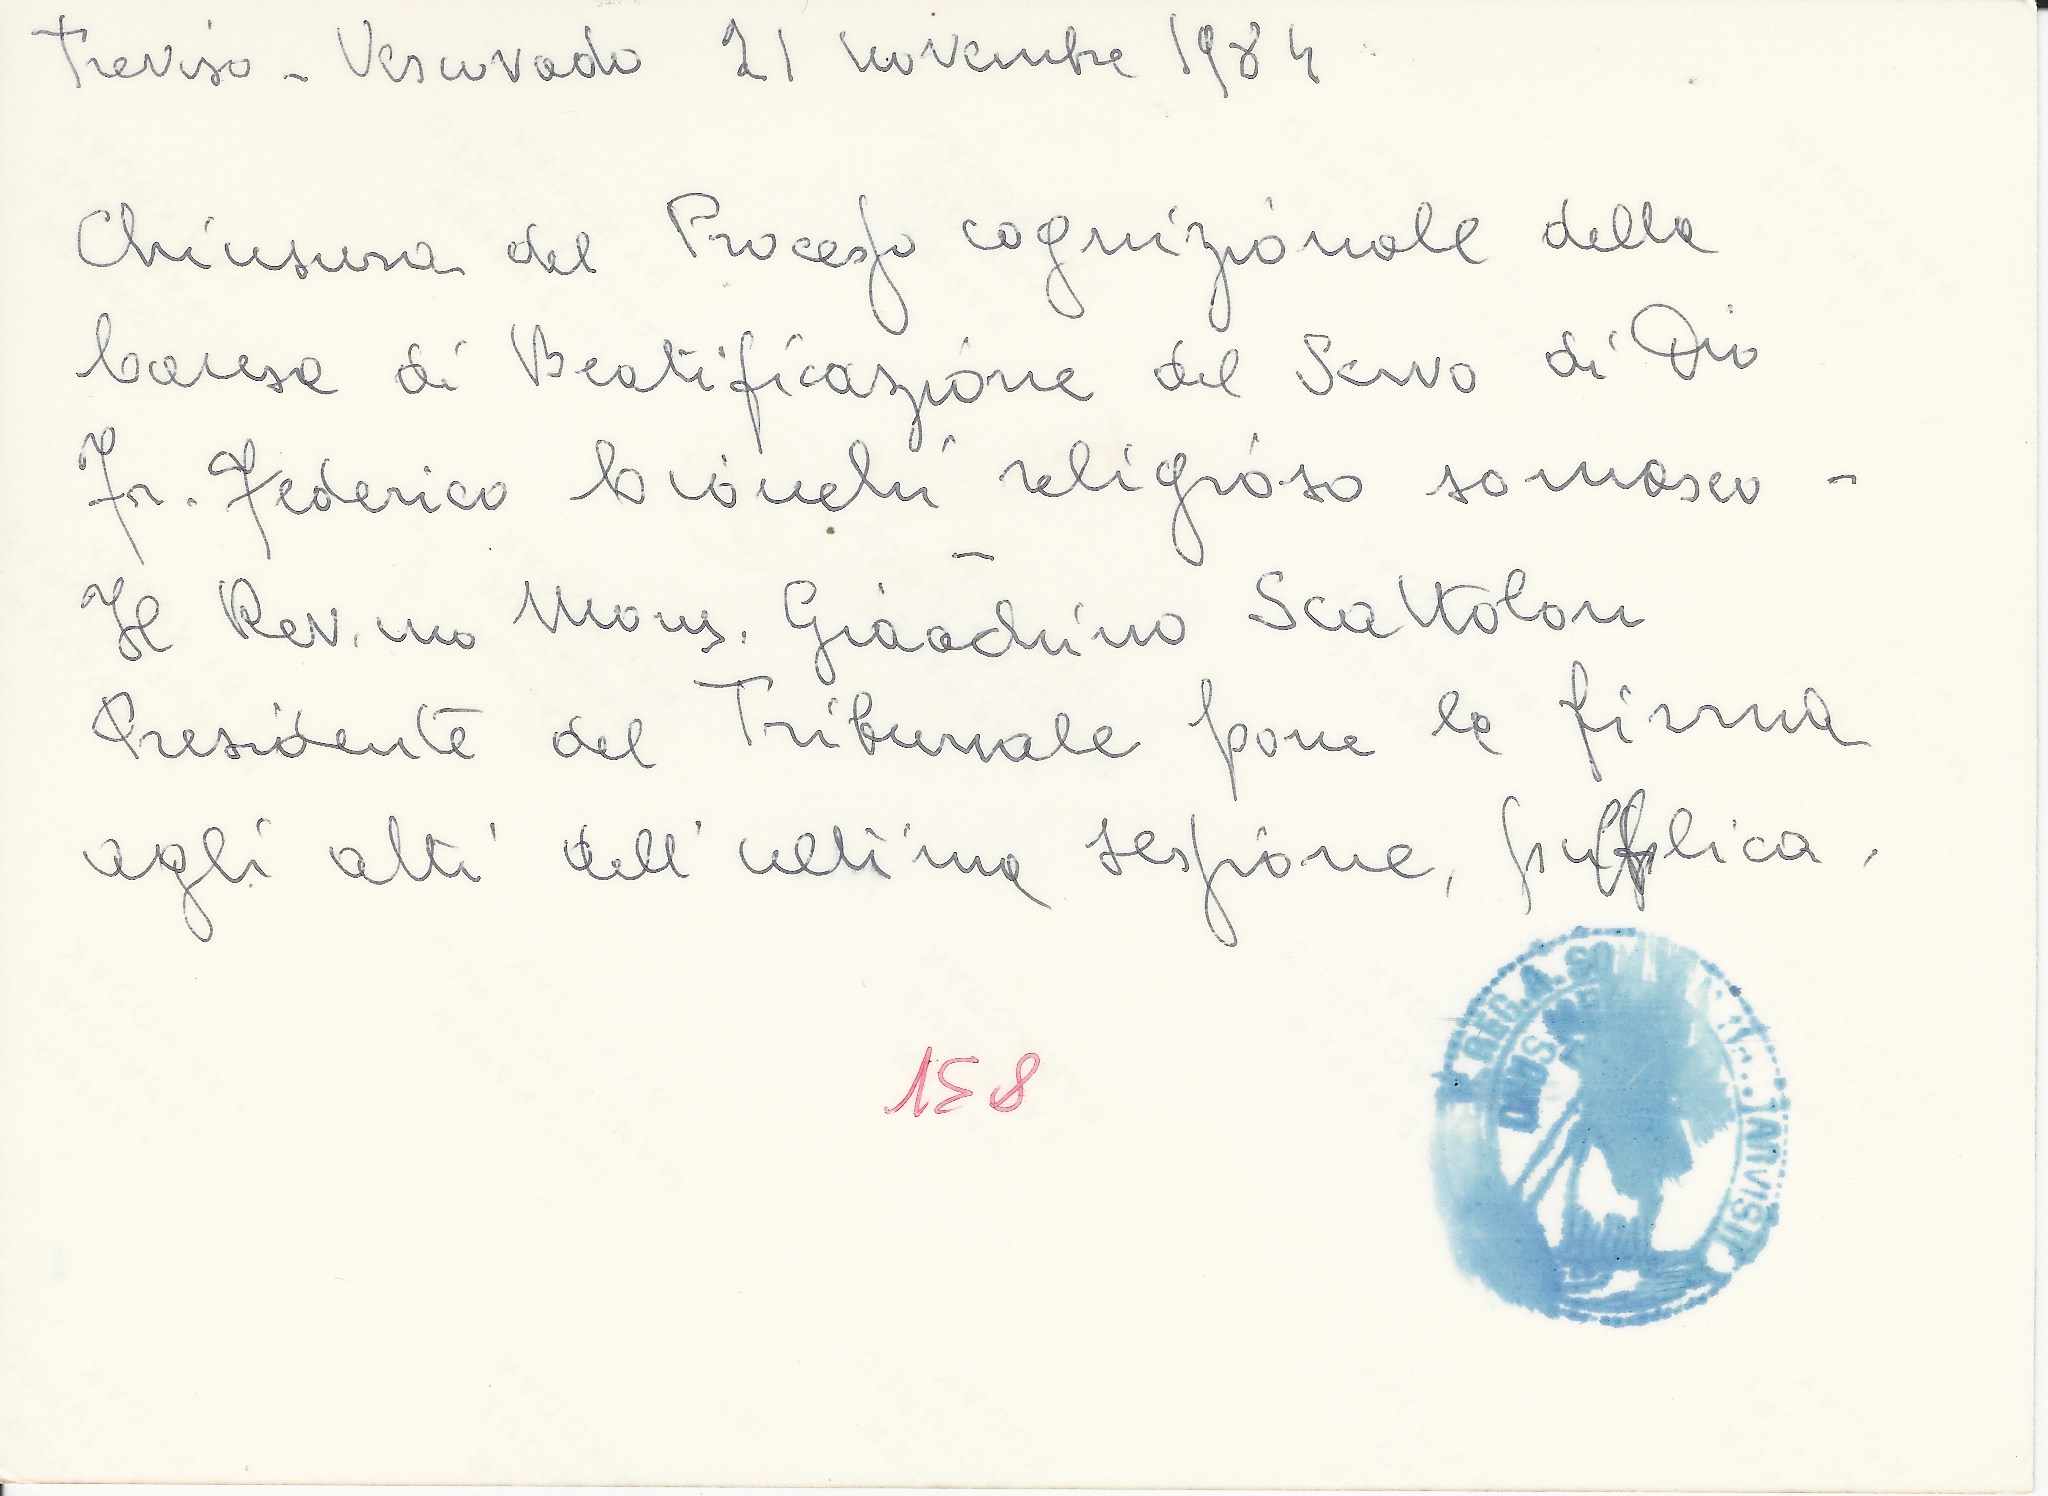 Treviso - Vescovado 21 novembre 1984
Chiusura del Processo cognizionale della
Causa di Beatificazione del Servo di Dio
Fr. Federico Cionchi religioso somasco -
Il Rev.mo Mons. Scattolon
Presidente del Tribunale pone la firma
agli atti dell'ultima sessione, pubblica.
158
REG. A. SO
TARVISII